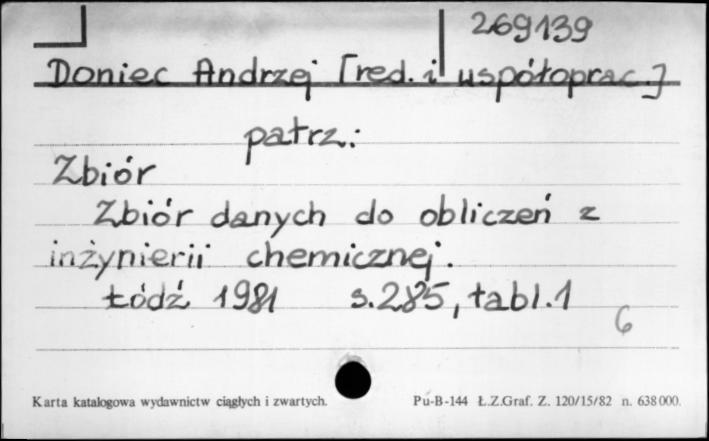 269139
Doniec Andrzej [red. i współoprac.]
patrz:
Zbiór
Zbiór danych do obliczeń z
inżynierii chemicznej.
Łódź 1981 s.285, tabl.1
6
Karta katalogowa wydawnictw ciągłych i zwartych. Pu-B-144 Ł.Z.Graf. Z. 120/15/82 n. 638000.